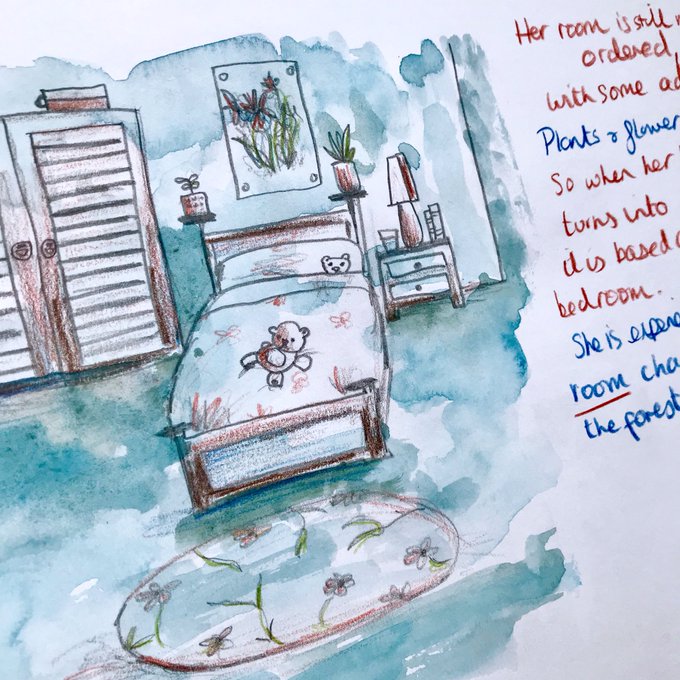 Her room is still
ordered,
with some
Plants & flower
So when her
turns into
it is based
bedroom.
She is
room
the forest